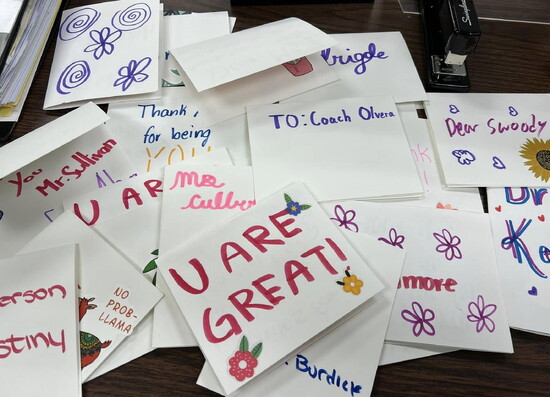 Thank,
for being
YOU
TO: Coach Olvera
Dear Swoody
You
Mr. Sullivan
U AR
Ms.
Culber
U ARE
GREAT!
more
Dr
Ke
erson
stiny
NO
PROB-
LLAMA
Burdick